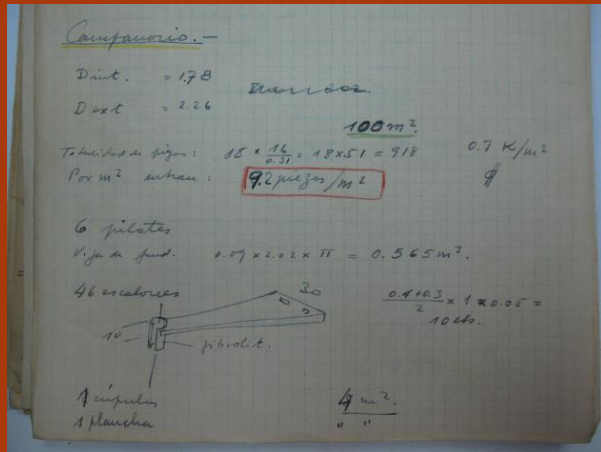 Campanario.-
D int. = 1.78
D ext = 2.26
100 m².
Totalidad de piezas: 18 × 16/0.31 = 18×51 = 918 0.7 K/m²
Por m² entran: 9.2 piezas/m²
6 pilotes
Viga de fund. 0.09 × 2.02 × π = 0.565 m³.
46 escalones
30
(0.4+0.3)/2 × 1 × 0.05 =
10
10 cts.
fibrolit.
1 cúpulas 4 m².
1 plancha " "